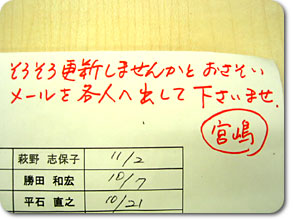 そろそろ更新しませんかと おさそい
メールを各人へ出して下さいませ.
宮嶋
萩野 志保子 11/2
勝田 和宏 10/7
平石 直之 10/21